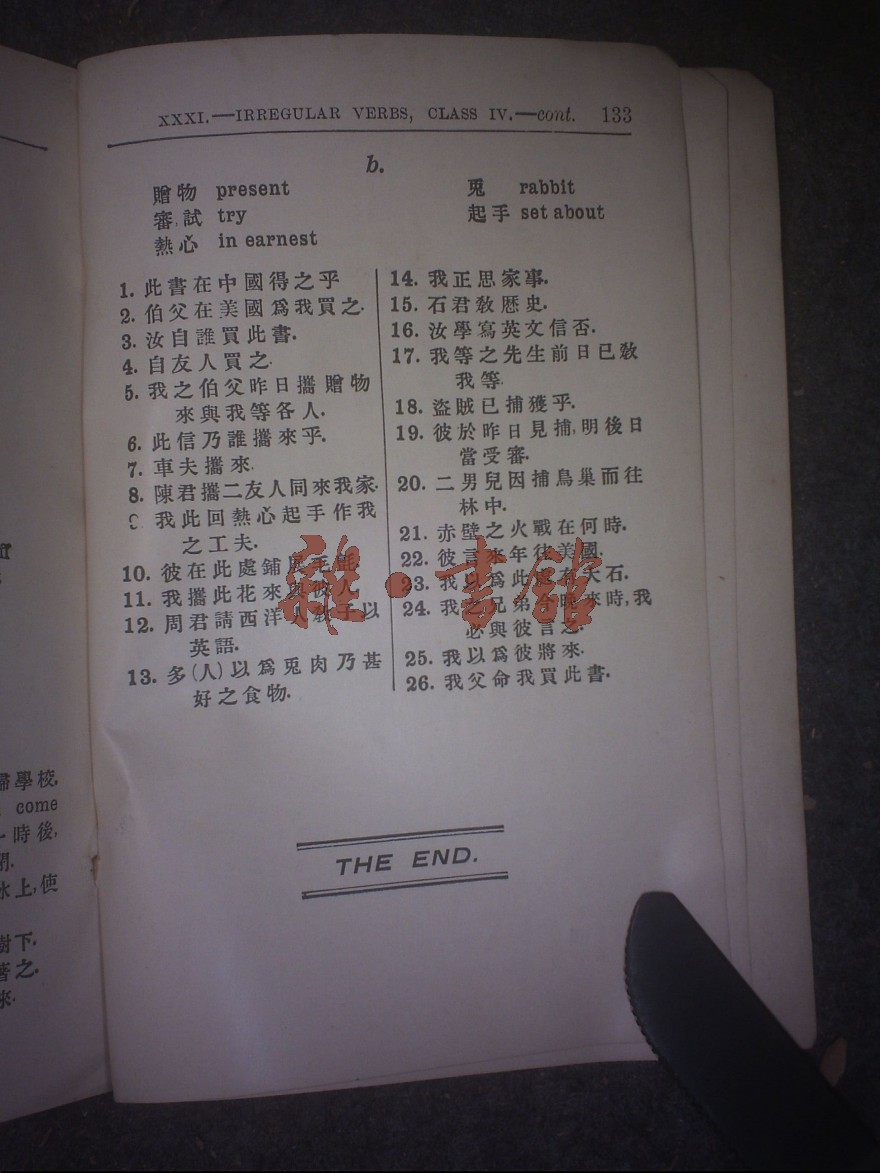 XXXI.—IRREGULAR VERBS, CLASS IV.—cont. 133
b.
贈物 present
審,試 try
熱心 in earnest
兎 rabbit
起手 set about
1. 此書在中國得之乎
2. 伯父在美國爲我買之.
3. 汝自誰買此書.
4. 自友人買之.
5. 我之伯父昨日攜贈物
來與我等各人.
6. 此信乃誰攜來乎.
7. 車夫攜來.
8. 陳君攜二友人同來我家.
9. 我此回熱心起手作我
之工夫.
10. 彼在此處鋪展毛氈.
11. 我攜此花來與彼人
12. 周君請西洋人教子以
英語.
13. 多(人)以爲兎肉乃甚
好之食物.
14. 我正思家事.
15. 石君敎歷史.
16. 汝學寫英文信否.
17. 我等之先生前日已敎
我等.
18. 盜賊已捕獲乎.
19. 彼於昨日見捕,明後日
當受審.
20. 二男兒因捕鳥巢而往
林中.
21. 赤壁之火戰在何時.
22. 彼言來年往美國.
23. 我以爲此處有大石.
24. 我之兄弟今晚來時,我
必與彼言之.
25. 我以爲彼將來.
26. 我父命我買此書.
THE END.
雜·書館
歸學校.
come
時後,
水上,使
樹下.
著之.
來.